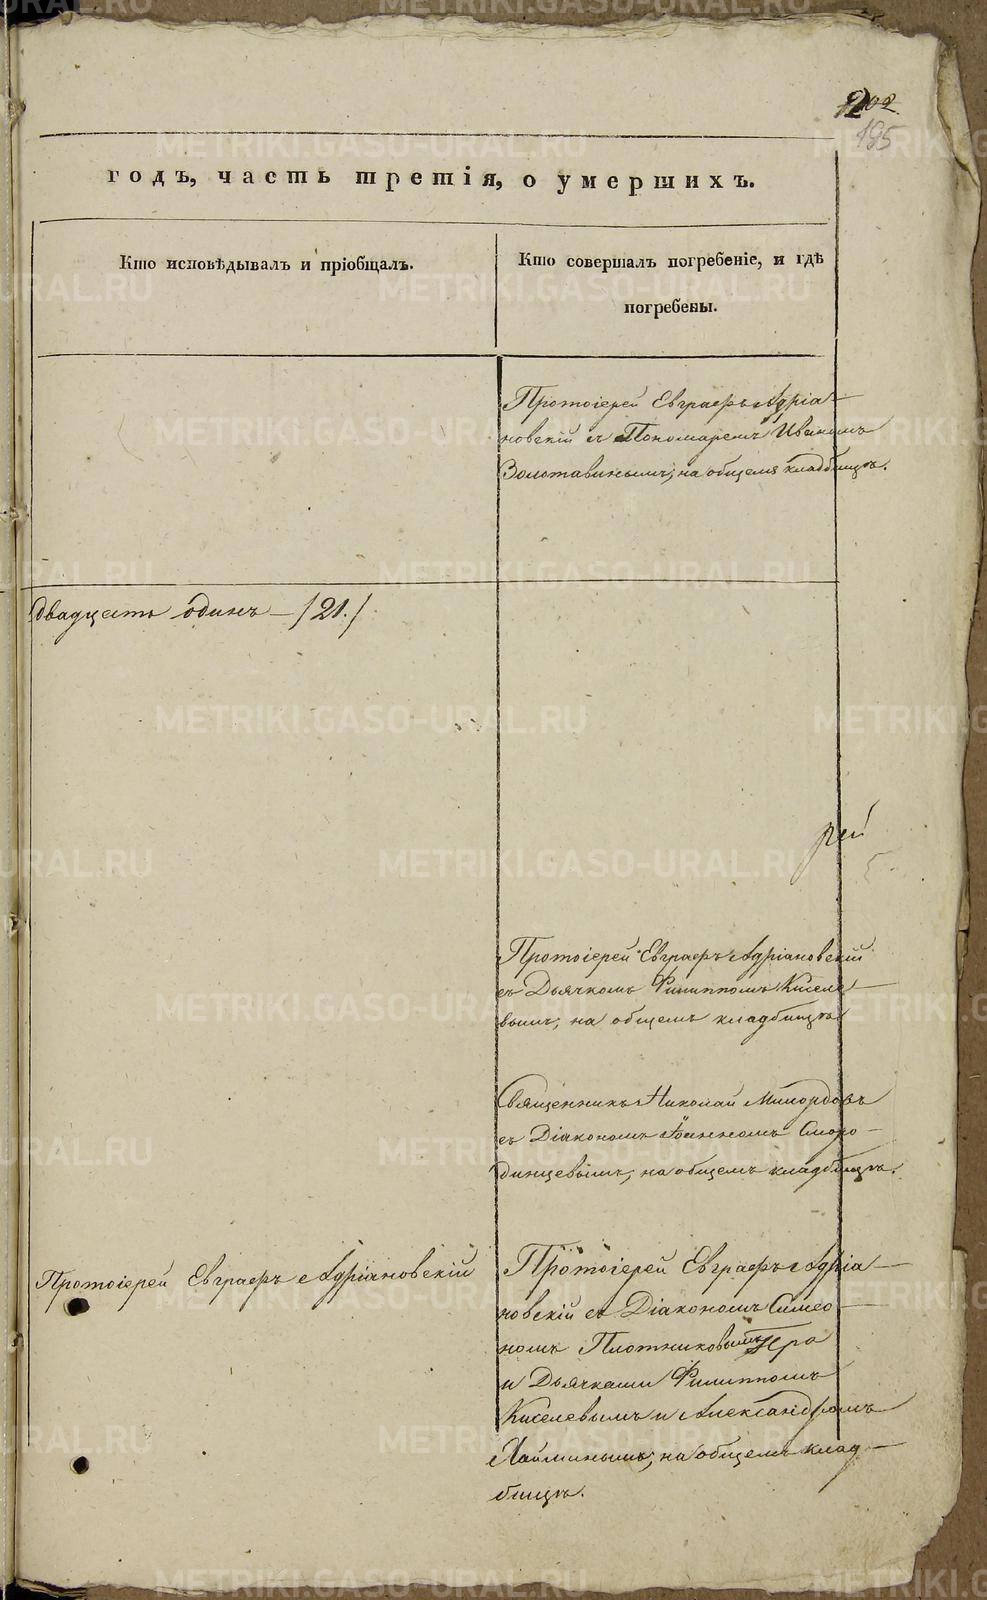 195
годъ, часть третія, о умершихъ.
Кто исповѣдывалъ и пріобщалъ.
Кто совершалъ погребеніе, и гдѣ
погребены.
Протоіерей Евграфъ Адріа-
новскій съ Пономаремъ Иваномъ
Золотавинымъ, на общемъ кладбищѣ.
Двадцать одинъ — /21./
рей
Протоіерей Евграфъ Адріановскій
съ Дьячкомъ Филиппомъ Киселе-
вымъ, на общемъ кладбищѣ
Священникъ Николай Милордовъ
съ Діакономъ Іоанномъ Сморо-
динцевымъ, на общемъ кладбищѣ.
Протоіерей Евграфъ Адріановскій
Протоіерей Евграфъ Адріа-
новскій съ Діакономъ Симео-
номъ Плотниковымъ
и Дьячками Филиппомъ
Киселевымъ и Александромъ
Хайминымъ, на общемъ клад-
бищѣ.
METRIKI.GASO-URAL.RU